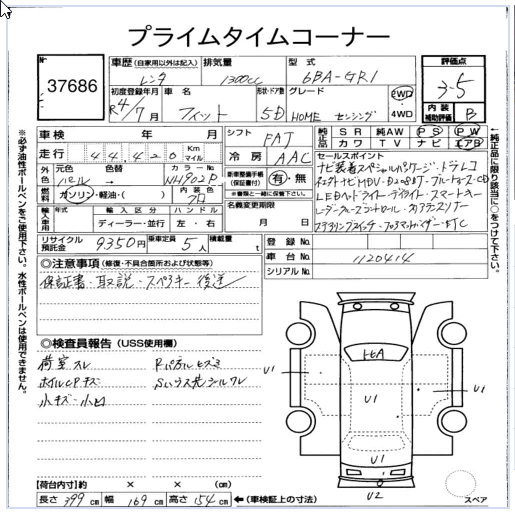 プライムタイムコーナー
No
37686
車歴 (自家用以外は記入) 排気量 型式
レンタ 1300cc 6BA-GR1
初度登録年月 車名 形状・ドア数 グレード
R4/7月 フィット 5D HOME センシング 2WD 4WD
評価点
3.5
内装補助評価 B
車検 年 月
走行 44,420 Km マイル
シフト FAT
冷房 AAC
純正品 SR 純AW PS PW
カワ TV ナビ エアB
外色 元色 色替 カラーNo.
パール → NH902P
燃料 ガソリン・軽油・( ) 内装色 クロ
車両整備手帳 (保証書付) 有・無
※書類と一緒に保管して下さい。
セールスポイント
ナビ装着スペシャルパッケージ・ドラレコ
LEDヘッドライト・デイライト・スマートキー
レーダークルーズコントロール・クリアランスソナー
ETC
輸入車用 年式 輸入区分 ハンドル
ディーラー・並行 左・右
名義変更期限
月 日
リサイクル預託金 9350円 乗車定員 5人 積載量 t
登録No.
車台No. 1120414
シリアルNo.
◎注意事項 (修復・不具合箇所および状態等)
保証書・取説・スペアキー 後送
◎検査員報告 (USS使用欄)
荷室スレ Rパネルヒズミ
ホイルCPキズ
小キズ・小凹
U1
U1
U1
U1
U2
スペア
【荷台内寸】約 × × (cm)
長さ 399 cm 幅 169 cm 高さ 154 cm ←(車検証上の寸法)
※必ず油性ボールペンをご使用下さい。水性ボールペンは使用できません。
←純正品に限り該当に○をつけて下さい。